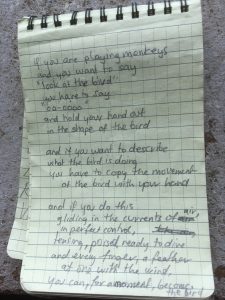 if you are playing monkeys
and you want to say
"look at the bird"
you have to say
"oo-oooo"
and hold your hand out
in the shape of the bird
and if you want to describe
what the bird is doing
you have to copy the movement
of the bird with your hand
and if you do this
gliding in the currents of air
in perfect control,
tensing, poised ready to dive
and every finger, a feather
at one with the wind,
you can, for a moment, become
the bird